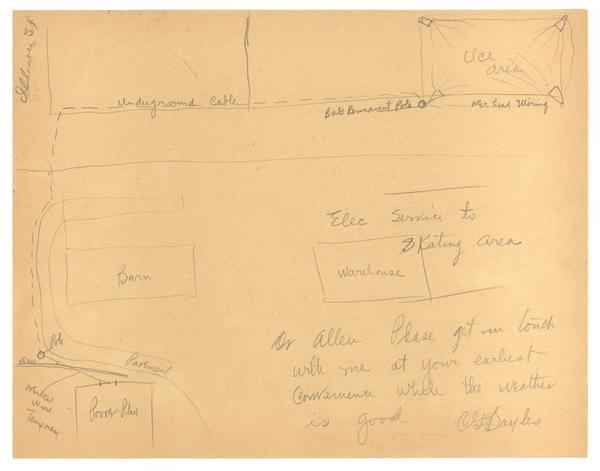 Illinois St
Ice
area
Underground Cable
Permanent Pole
Wiring
Elec Service to
Skating area
Barn
Warehouse
Pole
Pavement
Wires
Wire
Temporary
Power Plant
Dr Allen Please get in touch
with me at your earliest
Convenience while the weather
is good